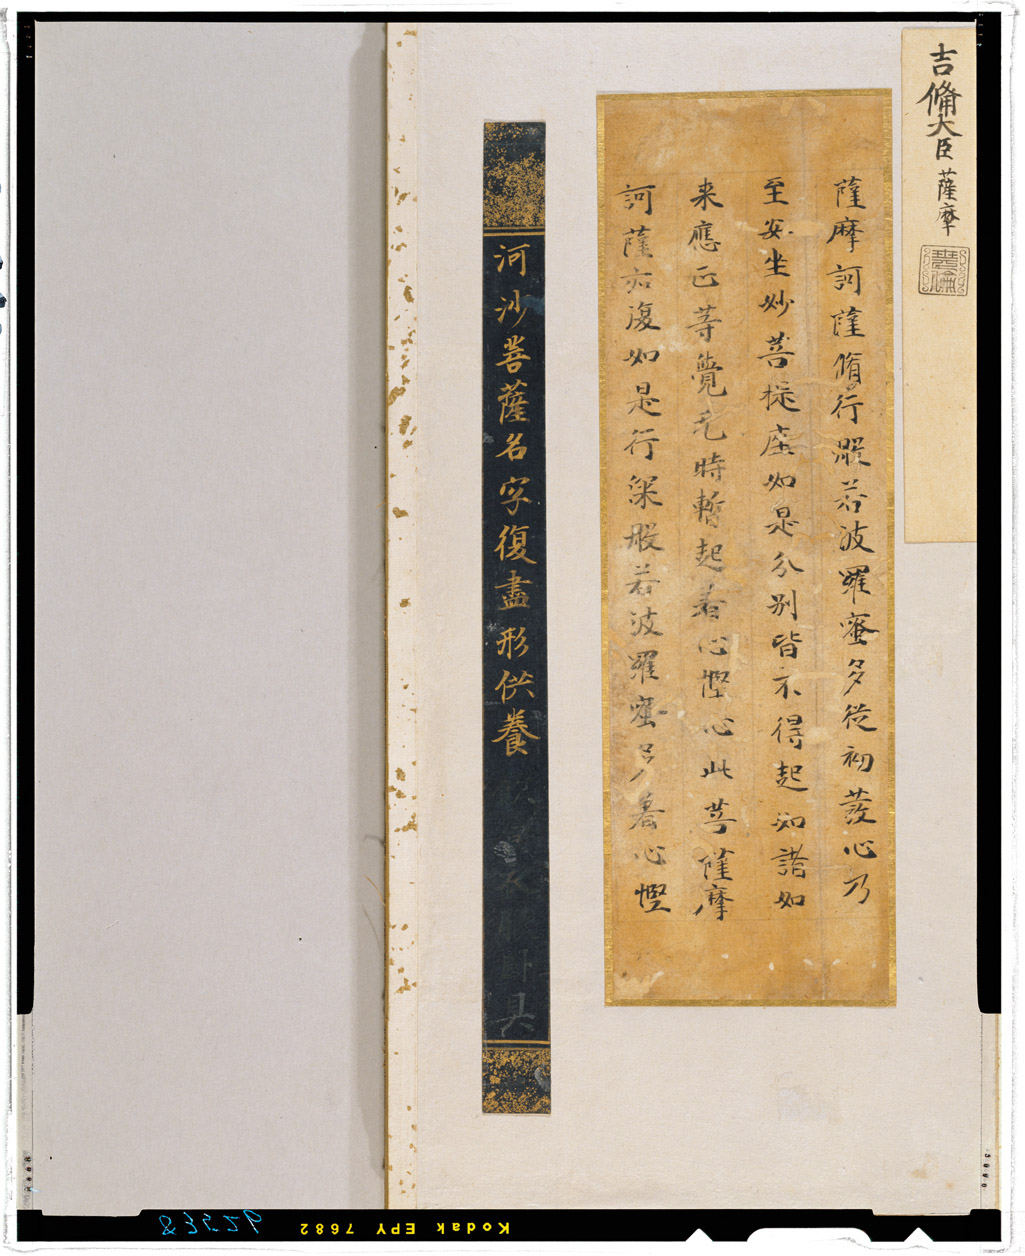 吉備大臣 薩摩
薩摩訶薩脩行般若波羅蜜多從初發心乃
至安坐妙菩提座如是分別皆不得起如諸如
来應正等覺无時暫起若心慳心此菩薩摩
訶薩亦復如是行深般若波羅蜜多著心慳
河沙菩薩名字復盡形供養
具
Kodak EPY 7682